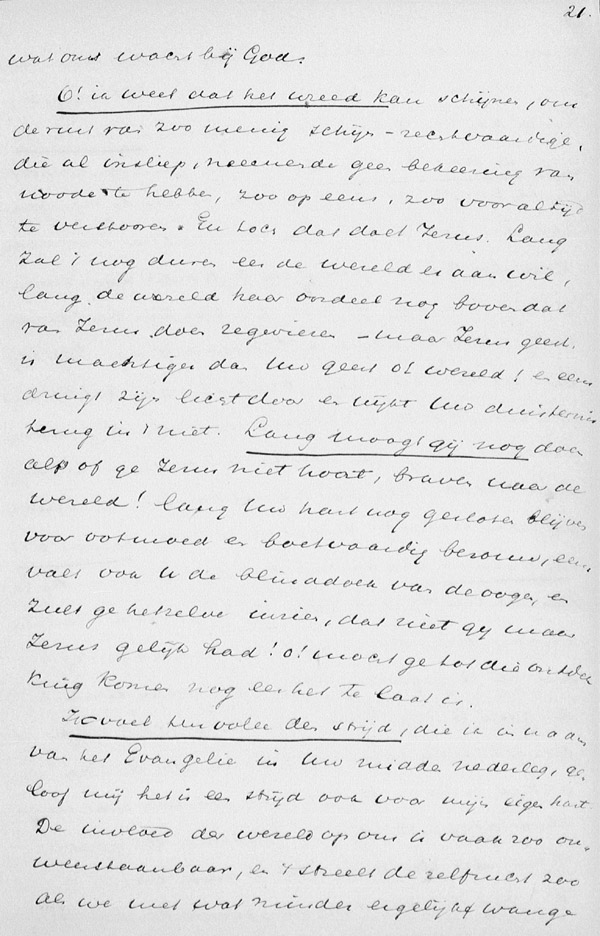 21.
wat ons wacht bij God.
O! ik weet dat het wreed kan schijnen, om
de rust van zoo menig schijn-rechtvaardige,
die al insliep, meenende geen bekeering van
noode te hebben, zoo op eens, zoo voor altijd
te verstooren. En toch dat doet Jezus. Lang
zal 't nog duren eer de wereld er aan wil,
lang de wereld haar oordeel nog boven dat
van Jezus doen zegevieren – maar Jezus geest
is machtiger dan Uw geest o! wereld! en eens
dringt zijn licht door en wijkt Uw duisternis
terug in 't niet. Lang moogt gij nog doen
als of ge Jezus niet hoort, braven naar de
wereld! lang Uw hart nog gesloten blijven
voor ootmoed en boetvaardig berouw, eens
valt ook U de blinddoek van de oogen, en
zult ge hetzelve inzien, dat niet gij maar
Jezus gelijk had! O! mocht ge tot die ontdek
king komen nog eer het te laat is.
Ik voel ten volle den strijd, die ik in naam
van het Evangelie in Uw midden nederleg, ge-
loof mij het is een strijd ook voor mijn eigen hart.
De invloed der wereld op ons is vaak zoo on-
weerstaanbaar, en 't streelt de zelfzucht zoo
als we met wat minder